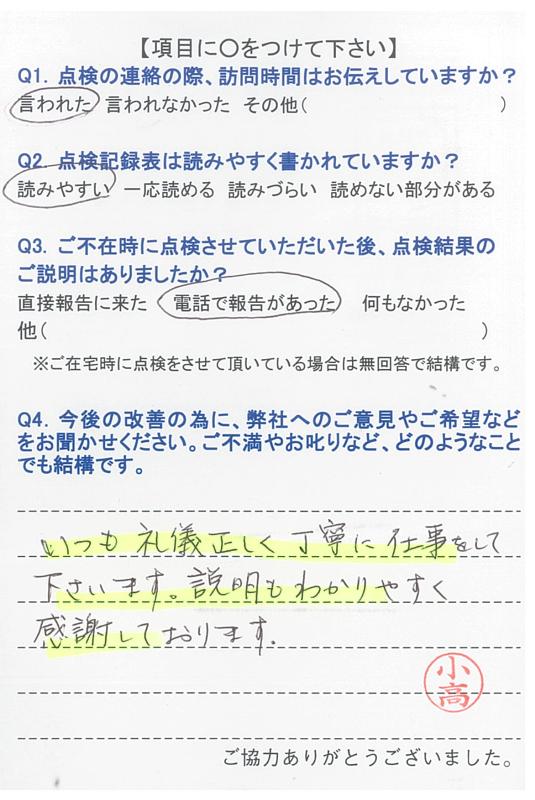 【項目に〇をつけて下さい】
Q1. 点検の連絡の際、訪問時間はお伝えしていますか？
言われた 言われなかった その他( )
Q2. 点検記録表は読みやすく書かれていますか？
読みやすい 一応読める 読みづらい 読めない部分がある
Q3. ご不在時に点検させていただいた後、点検結果の
ご説明はありましたか？
直接報告に来た 電話で報告があった 何もなかった
他( )
※ご在宅時に点検をさせて頂いている場合は無回答で結構です。
Q4. 今後の改善の為に、弊社へのご意見やご希望など
をお聞かせください。ご不満やお叱りなど、どのようなこと
でも結構です。
いつも礼儀正しく丁寧に仕事をして
下さいます。説明もわかりやすく
感謝しております.
小
高
ご協力ありがとうございました。